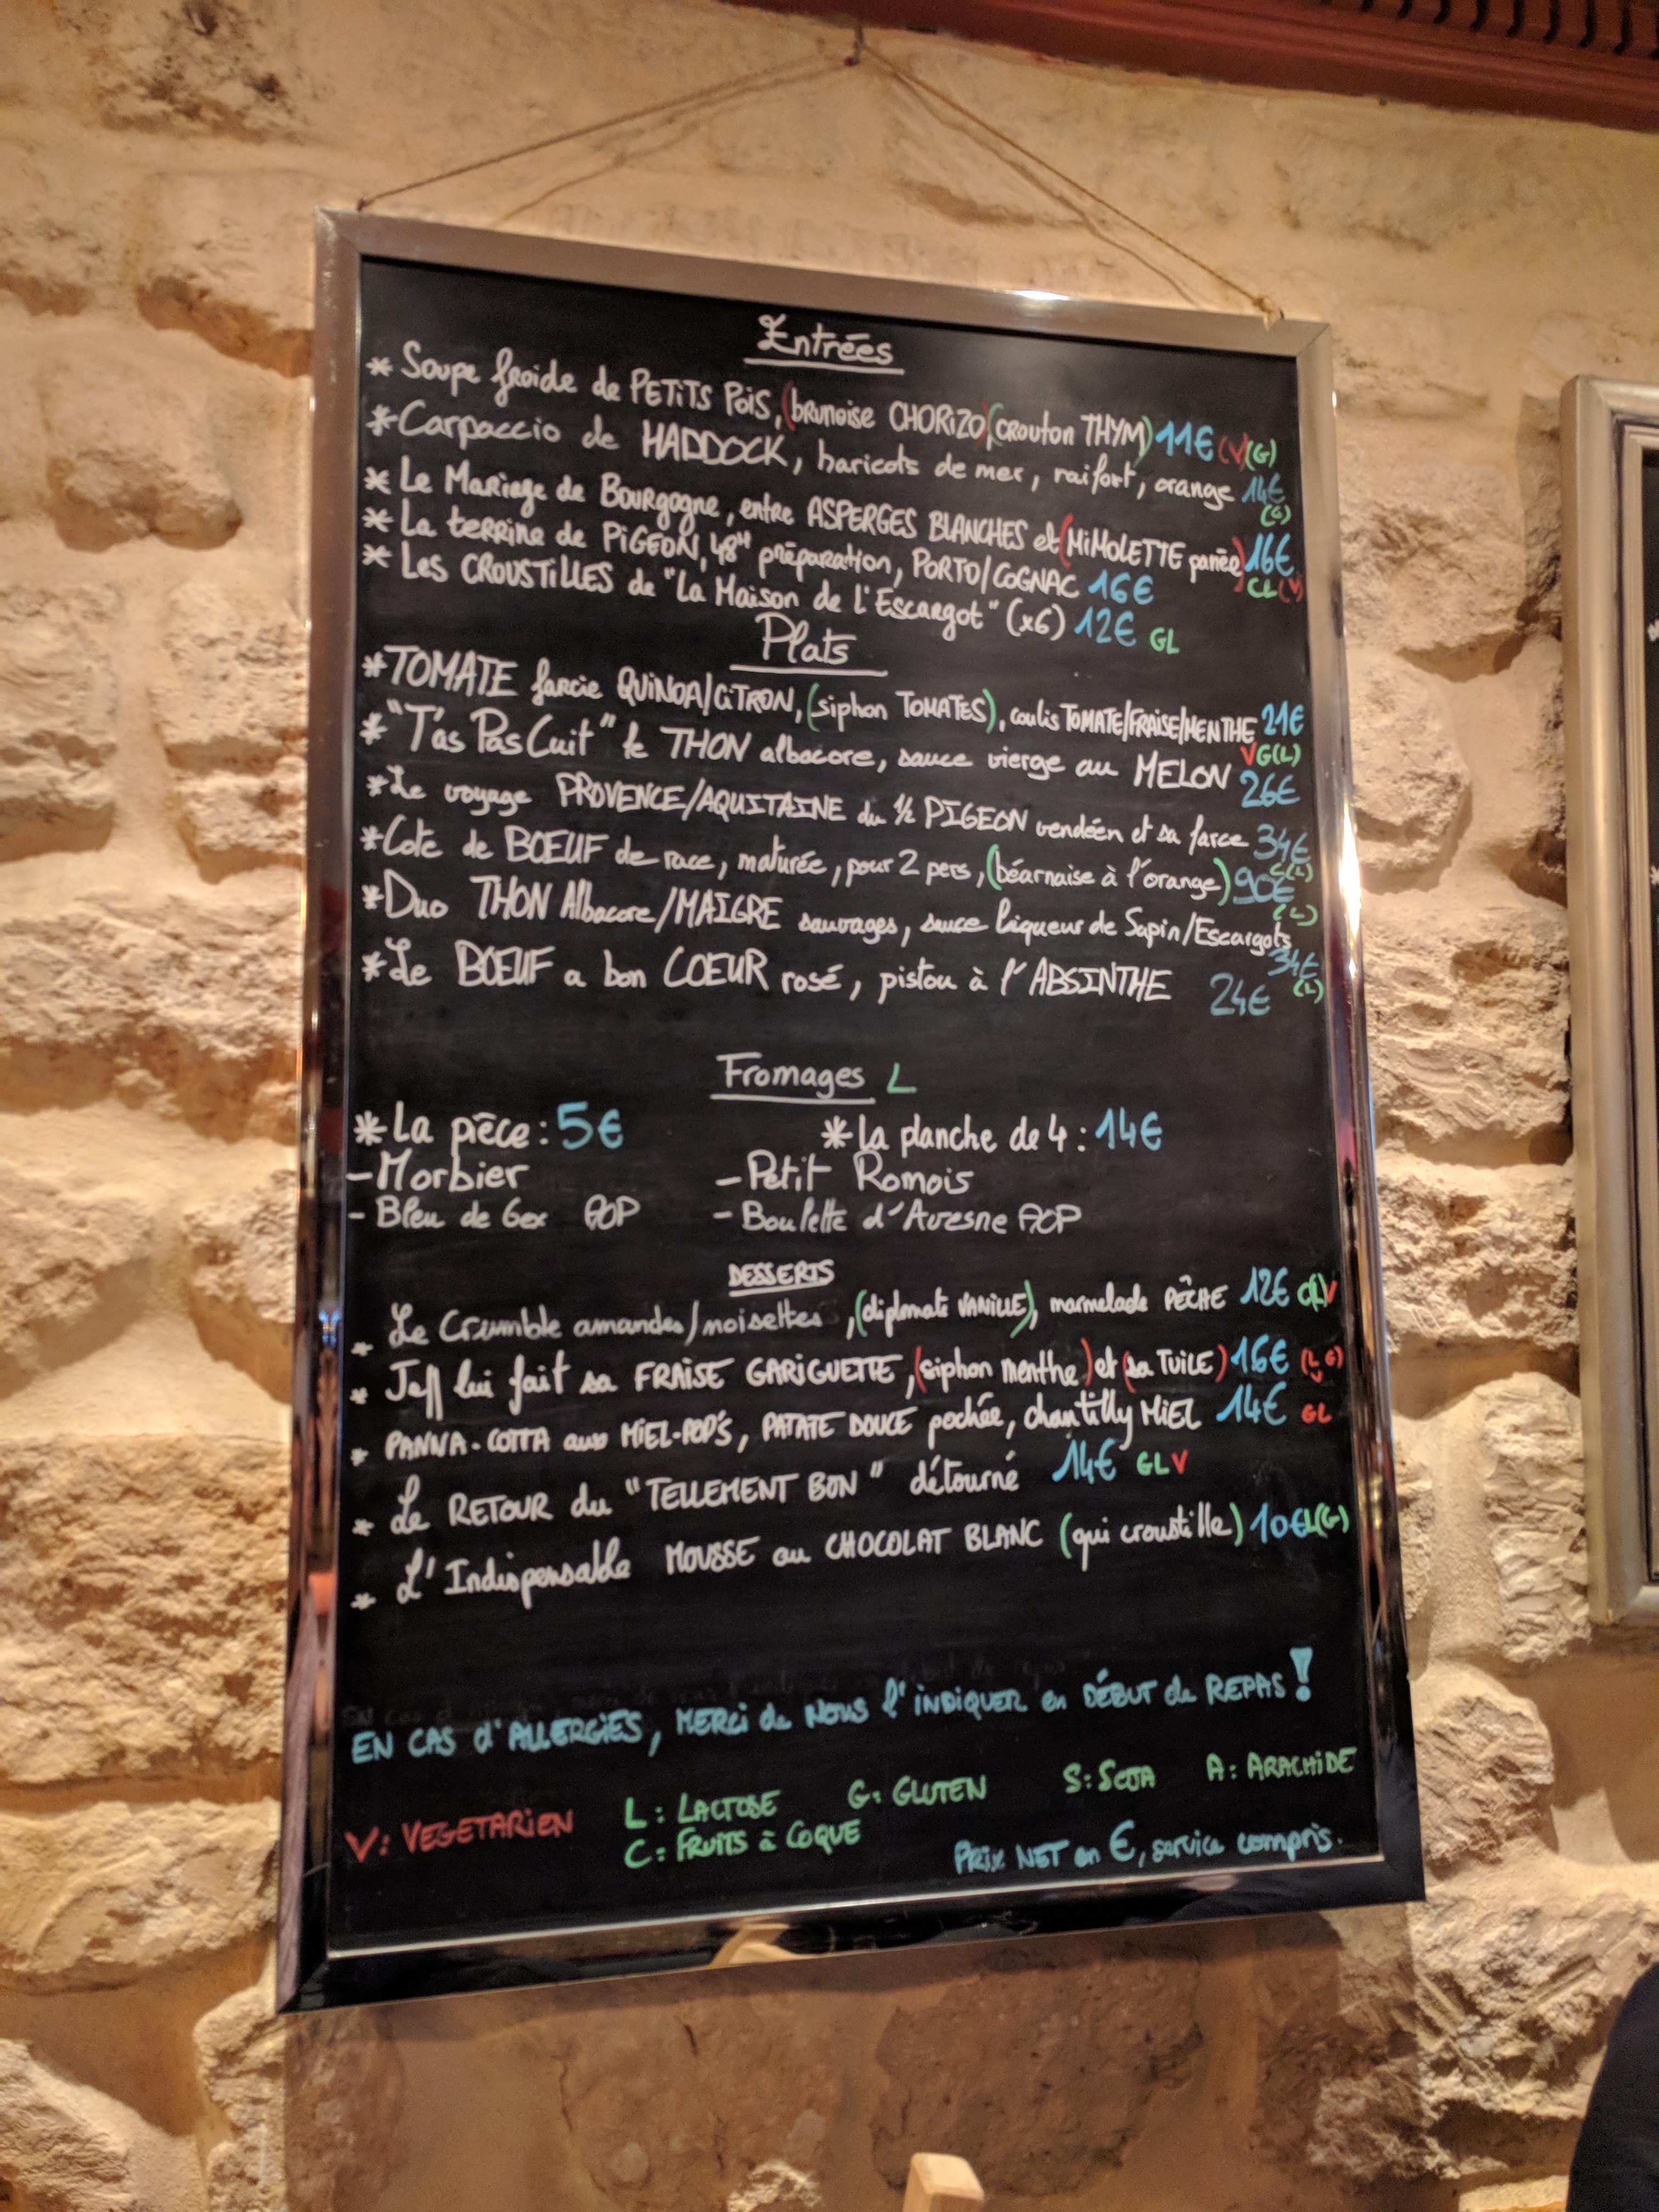 Entrées
* Soupe froide de PETITS POIS, (brunoise CHORIZO) (crouton THYM) 11€ (V)(G)
* Carpaccio de HADDOCK, haricots de mer, raifort, orange 14€
(G)
* Le Mariage de Bourgogne, entre ASPERGES BLANCHES et (MIMOLETTE panée) 16€
* La terrine de PIGEON, 48H préparation, PORTO/COGNAC 16€ (V)
* Les CROUSTILLES de "La Maison de l'Escargot" (x6) 12€ GL
Plats
* TOMATE farcie QUINOA/CITRON, (siphon TOMATES), coulis TOMATE/FRAISE/MENTHE 21€
VG(L)
* "T'as Pas Cuit" le THON albacore, sauce vierge au MELON 26€
* Le voyage PROVENCE/AQUITAINE du 1/2 PIGEON vendéen et sa farce 34€
* Cote de BOEUF de race, maturée, pour 2 pers, (béarnaise à l'orange) 90€
(L)
* Duo THON Albacore/MAIGRE sauvages, sauce liqueur de Sapin/Escargots
34€
(L)
* Le BOEUF a bon COEUR rosé, pistou à l'ABSINTHE 24€
Fromages L
* La pièce : 5€ * La planche de 4 : 14€
- Morbier - Petit Romois
- Bleu de Gex AOP - Boulette d'Avesne AOP
DESSERTS
* Le Crumble amandes/noisettes, (diplomate VANILLE), marmelade PÊCHE 12€
* Jeff lui fait sa FRAISE GARIGUETTE, (siphon menthe) et (sa TUILE) 16€ (L G)
V
* PANNA-COTTA aux MIEL-POP'S, PATATE DOUCE pochée, chantilly MIEL 14€ GL
* Le RETOUR du "TELLEMENT BON" détourné 14€ GLV
* L'Indispensable MOUSSE au CHOCOLAT BLANC (qui croustille) 10€ L(G)
EN CAS d'ALLERGIES, MERCI de NOUS l'INDIQUER en DÉBUT de REPAS !
V: VEGETARIEN L: LACTOSE G: GLUTEN S: SOJA A: ARACHIDE
C: FRUITS à COQUE
PRIX NET en €, service compris.